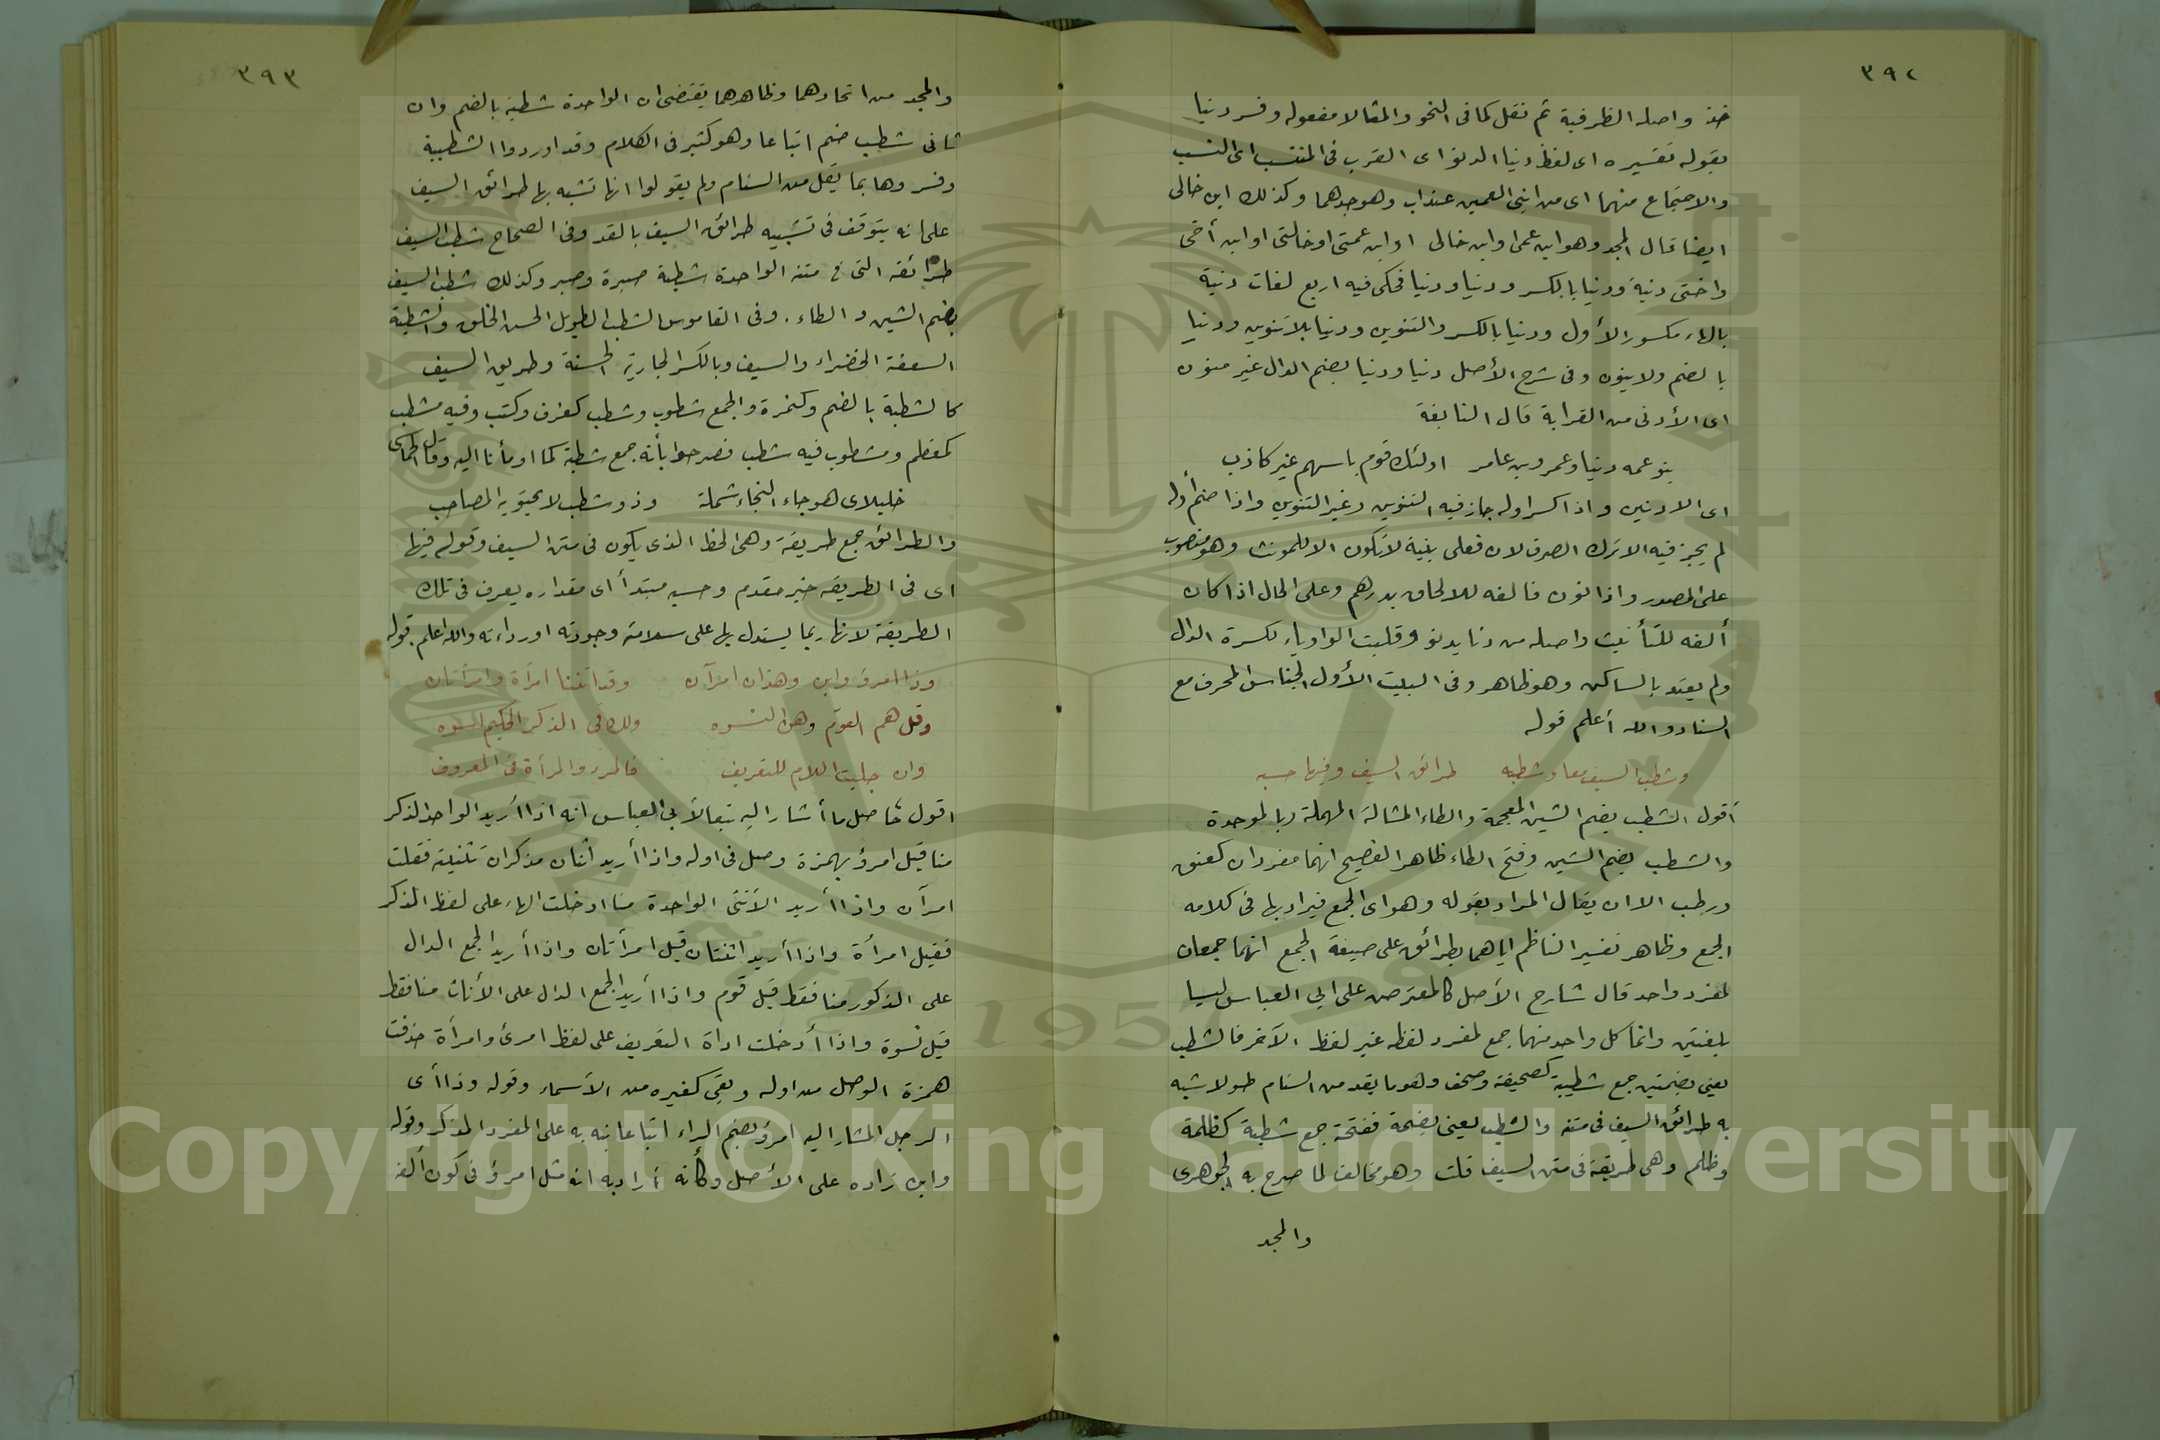 ٣٩٢
خذ واصله الظرفية ثم نقل كما فى النحو والمثالا مفعوله وفسر دنيا
بقوله تفسيره اى لفظ دنيا الدنو اى القرب فى المنتسب اى النسب
والاجتماع منهما اى من ابنى العمين عنداب وهو جدهما وكذلك ابن خالى
ايضا قال المجد وهو ابن عمى او ابن خالى او ابن عمتى او خالتى او ابن أخى
واختى دنية ودنيا بالكسر ودنيا ودنيا فحكى فيه اربع لغات دنية
بالهاء مكسور الأول ودنيا بالكسر والتنوين ودنيا بلا تنوين ودنيا
بالضم ولا ينون وفى شرح الأصل دنيا ودنيا بضم الدال غير منون
اى الأدنى من القرابة قال النابغة
بنو عمه دنيا وعمرو بن عامر اولئك قوم باسهم غير كاذب
اى الادنين واذا كسر اوله جاز فيه التنوين وغير التنوين واذا ضم أوله
لم يجز فيه الا ترك الصرف لان فعلى بنية لا تكون الا للمونث وهو منصوب
على المصدر واذا نون فالفه للالحاق بدرهم وعلى الحال اذا كان
ألفه للتأنيث واصله من دنا يدنو وقلبت الواو ياء لكسرة الدال
ولم يعتد بالساكن وهو ظاهر وفى البيت الأول الجناس المحرف مع
السناد والله أعلم قوله
وشطب السيف معا وشطبه طرائق السيف وفيها حسبه
أقول الشطب بضم الشين المعجمة والطاء المشالة المهملة وبالموحدة
والشطب بضم الشين وفتح الطاء ظاهر الفصيح انهما مفردان كعنق
ورطب الا ان يقال المراد بقوله وهو اى الجمع فيراد بها فى كلامه
الجمع وظاهر تفسير الناظم اياهما بطرائق على صيغة الجمع انهما جمعان
لمفرد واحد قال شارح الأصل كالمعترض على ابى العباس ليسا
بلغتين وانما كل واحد منهما جمع لمفرد لفظه غير لفظ الآخر فالشطب
يعنى بضمتين جمع شطيبة كصحيفة وصحف وهو ما يقد من السنام طولا شبه
به طرائق السيف فى متنه والشطب يعنى بضمة ففتحة جمع شطبة كظلمة
وظلم وهى طريقة فى متن السيف قلت وهو مخالف لما صرح به الجوهرى
والمجد
٣٩٣
والمجد من اتحادهما وظاهرهما يقتضى ان الواحدة شطبة بالضم وان
ثانى شطب ضم اتباعا وهو كثير فى الكلام وقد اوردوا الشطيبة
وفسروها بما يقل من السنام ولم يقولوا انها تشبه بها طرائق السيف
على انه يتوقف فى تشبيه طرائق السيف بالقد وفى الصحاح شطب السيف
طرائقه التى فى متنه الواحدة شطبة صبرة وصبر وكذلك شطب السيف
بضم الشين والطاء. وفى القاموس الشطب الطويل الحسن الخلق والشطبة
السعفة الخضراء والسيف وبالكسر الجارية الحسنة وطريق السيف
كالشطبة بالضم وكنمرة والجمع شطوب وشطب كغرف وكتب وفيه مشطب
كمعظم ومشطوب فيه شطب فصرحوا بأنه جمع شطبة كما اومأنا اليه وقال
خليلاى هوجاء النجاء شملة وذو شطب لا يحتويه المصاحب
والطرائق جمع طريقة وهى الخط الذى يكون فى متن السيف وقوله فيها
اى فى الطريقة خبر مقدم وحسبه مبتدأ اى مقداره يعرف فى تلك
الطريقة لانها ربما يستدل بها على سلامته وجودته اورداءته والله اعلم قوله
وذا امرؤ وابن وهذان امرآن وقد أتتنا امرأة وامرأتان
وقل هم القوم وهن النسوه ولك فى الذكر الحكيم اسوه
وان جلبت اللام للتعريف فالمرء والمرأة فى المعروف
اقول حاصل ما أشار اليه تبعا لأبى العباس انه اذا أريد الواحد المذكر
منا قيل امرؤ بهمزة وصل فى اوله واذا أريد اثنان مذكران تثنيته فقلت
امرآن واذا أريد الأنثى الواحدة منا ادخلت الهاء على لفظ المذكر
فقيل امرأة واذا أريد اثنتان قيل امرأتان واذا أريد الجمع الدال
على الذكور منا فقط قيل قوم واذا أريد الجمع الدال على الأناث منا فقط
قيل نسوة واذا أدخلت اداة التعريف على لفظ امرئ وامرأة حذفت
همزة الوصل من اوله وبقى كغيره من الأسماء وقوله وذا أى
الرجل المشار اليه امرؤ بضم الراء اتباعا نبه به على المفرد المذكر وقوله
وابن زاده على الأصل وكأنه أراد به انه مثل امرؤ فى كون ألفه
Copyright © King Saud University
1957